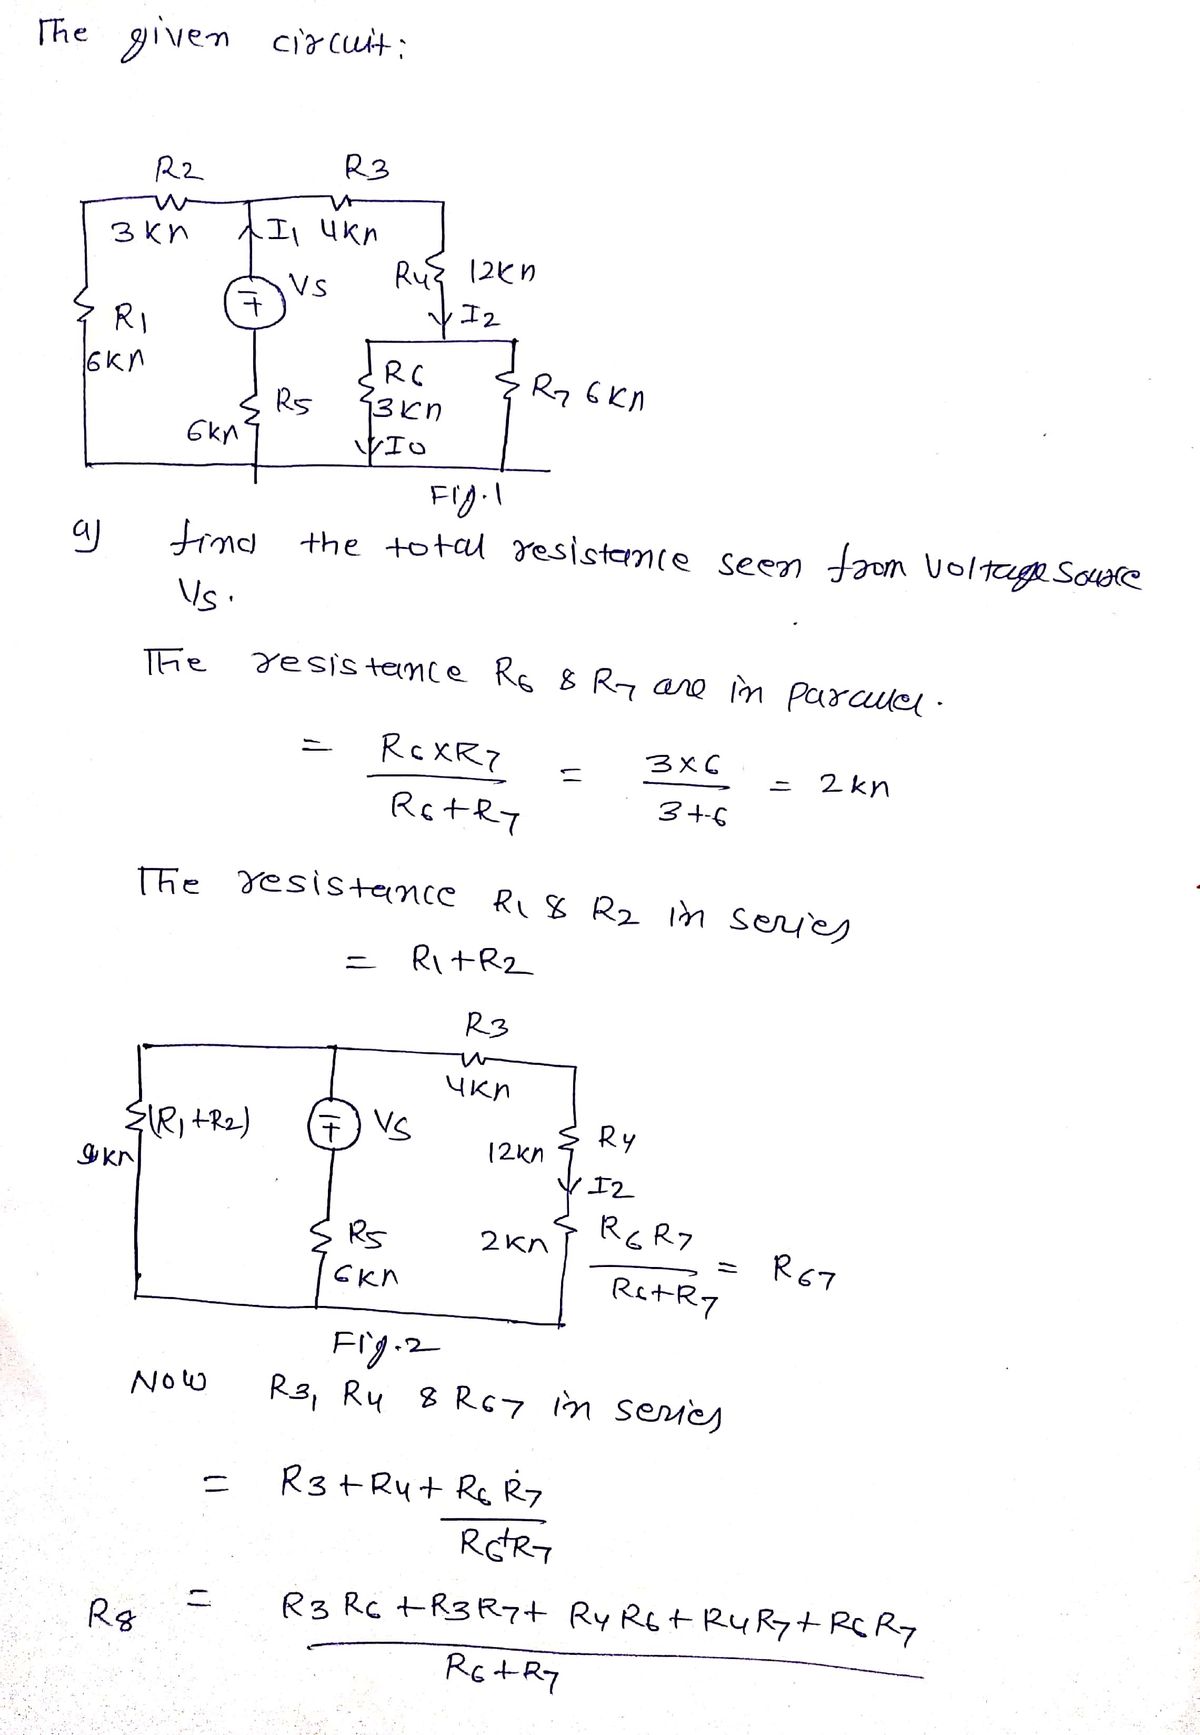 The given circuit:
R2 R3
3 kn I1 4kn
VS R4 12kn
R1 I2
6kn R6 R7 6kn
R5 3kn
6kn I0
Fig.1
a) find the total resistance seen from voltage source
Vs.
The resistance R6 & R7 are in parallel.
= R6XR7 / R6+R7 = 3×6 / 3+6 = 2kn
The resistance R1 & R2 in series
= R1+R2
R3
4kn
(R1+R2) VS R4
9kn 12kn
I2
R5 2kn R6 R7 / R6+R7 = R67
6kn
Fig.2
Now R3, R4 & R67 in series
= R3+R4+ R6 R7 / R6+R7
R8 = R3 R6 +R3R7+ R4 R6+R4R7+R6R7 / R6+R7